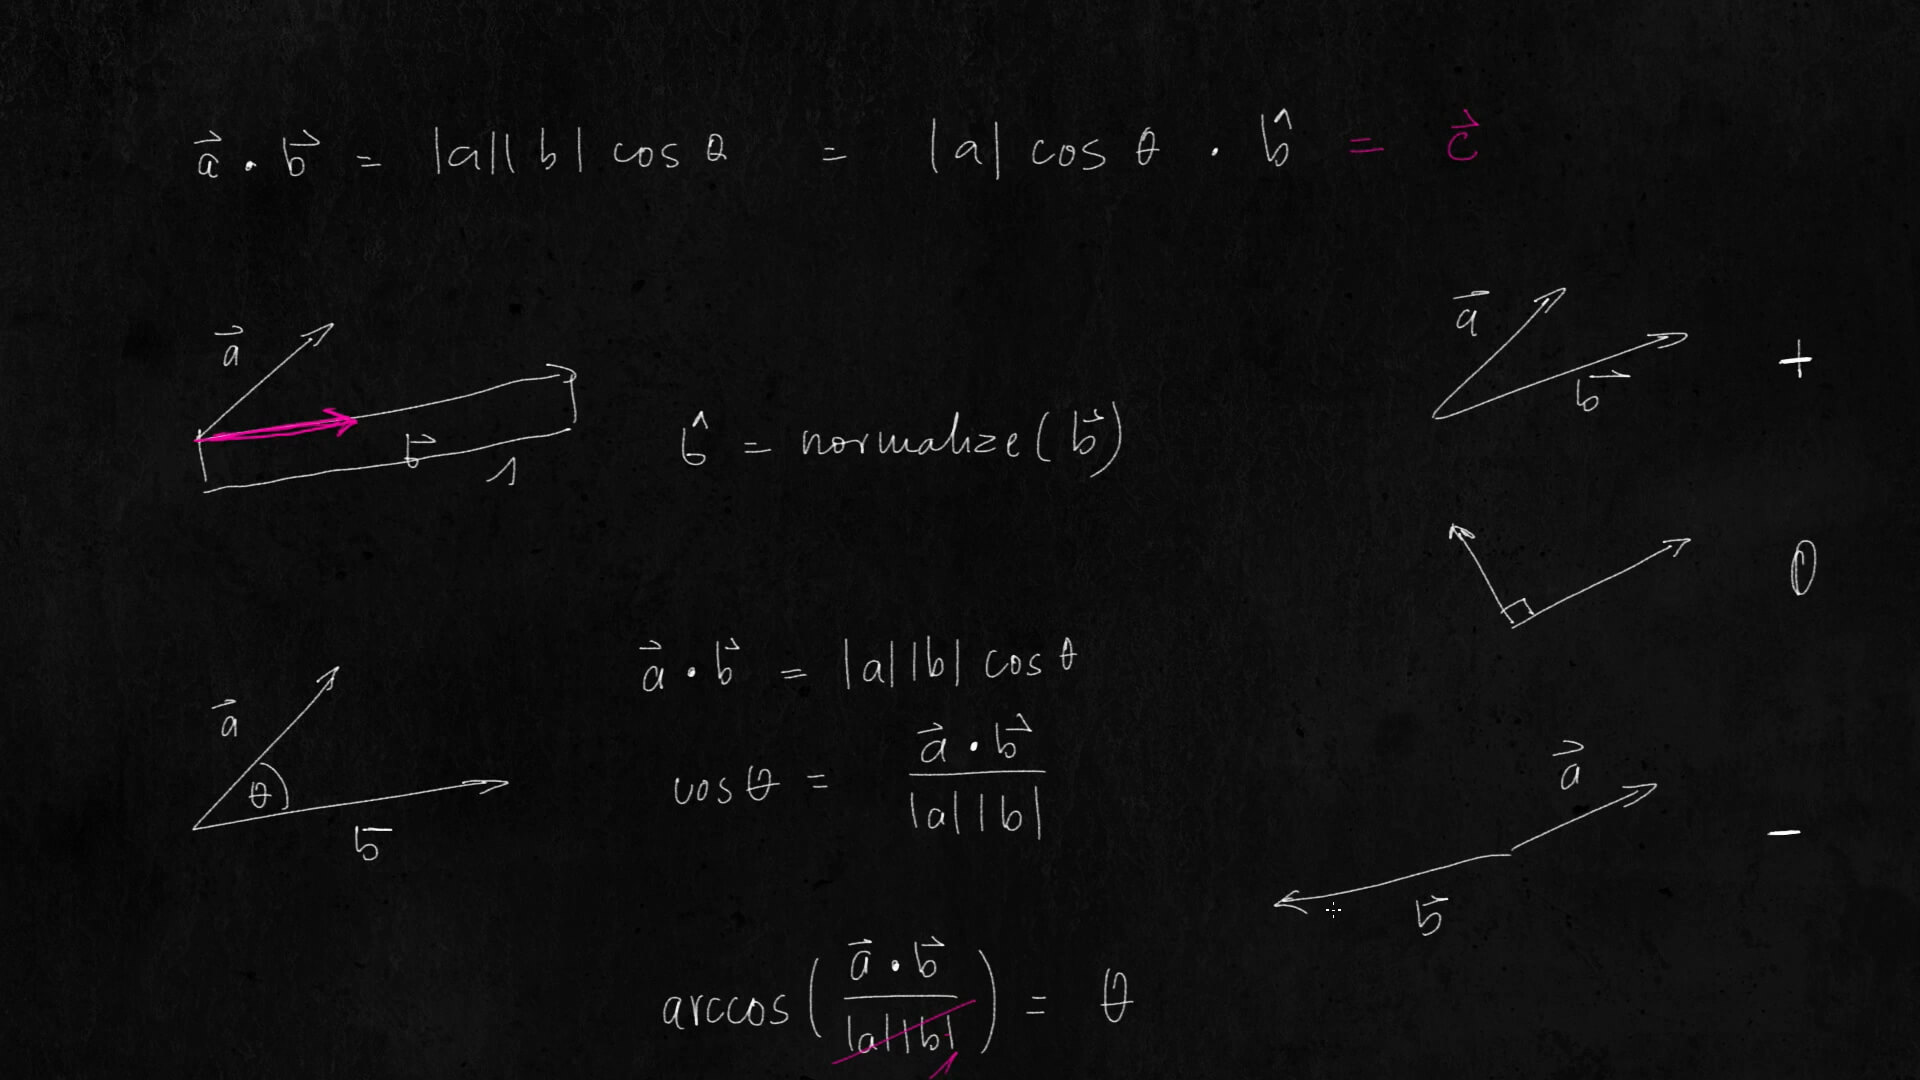 a⃗ · b⃗ = |a||b| cos θ = |a| cos θ · b̂ = c⃗
a⃗
b⃗
1
b̂ = normalize(b⃗)
a⃗
b⃗
+
0
a⃗ · b⃗ = |a||b| cos θ
a⃗
θ
b⃗
cos θ = a⃗ · b⃗ / |a||b|
a⃗
b⃗
-
arccos( a⃗ · b⃗ / |a||b| ) = θ
1